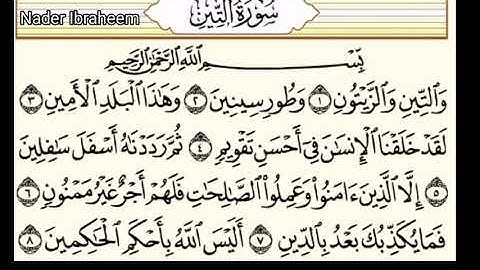 Nader Ibraheem
سُورَةُ التِّينِ
بِسْمِ اللَّهِ الرَّحْمَٰنِ الرَّحِيمِ
وَالتِّينِ وَالزَّيْتُونِ ١ وَطُورِ سِينِينَ ٢ وَهَٰذَا الْبَلَدِ الْأَمِينِ ٣
لَقَدْ خَلَقْنَا الْإِنسَٰنَ فِي أَحْسَنِ تَقْوِيمٍ ٤ ثُمَّ رَدَدْنَٰهُ أَسْفَلَ سَٰفِلِينَ
٥ إِلَّا الَّذِينَ ءَامَنُوا وَعَمِلُوا الصَّٰلِحَٰتِ فَلَهُمْ أَجْرٌ غَيْرُ مَمْنُونٍ ٦
فَمَا يُكَذِّبُكَ بَعْدُ بِالدِّينِ ٧ أَلَيْسَ اللَّهُ بِأَحْكَمِ الْحَٰكِمِينَ ٨